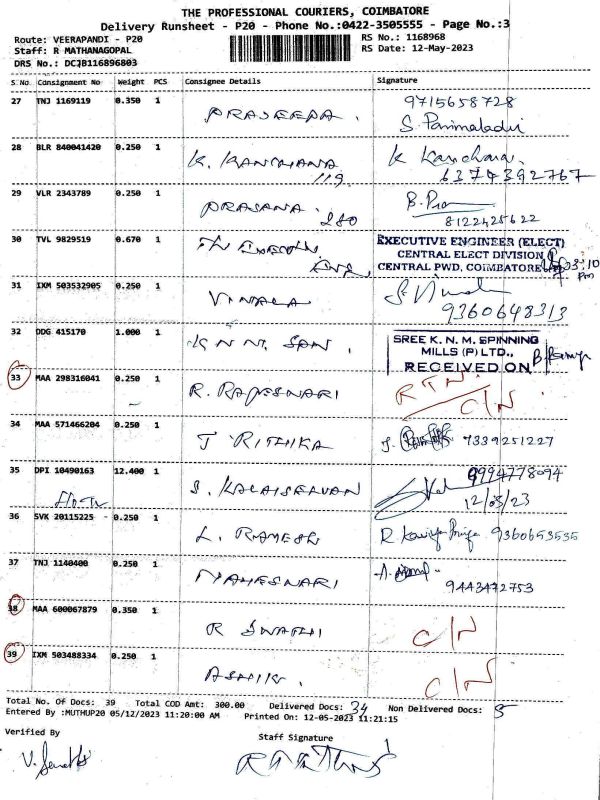 THE PROFESSIONAL COURIERS, COIMBATORE
Delivery Runsheet - P20 - Phone No.:0422-3505555 - Page No.:3
Route: VEERAPANDI - P20 RS No.: 1168968
Staff: R MATHANAGOPAL RS Date: 12-May-2023
DRS No.: DCJB116896803
S No Consignment No Weight PCS Consignee Details Signature
27 TNJ 1169119 0.350 1 9715658728
PRASEEDA. S. Parimaladevi
28 BLR 840041420 0.250 1 K. KANCHANA K Kanchana.
119. 6374392767
29 VLR 2343789 0.250 1 PRASANA. 280 B. Pra
8122425622
30 TVL 9829519 0.670 1 EXECUTIVE ENGINEER (ELECT)
CENTRAL ELECT DIVISION
CENTRAL PWD, COIMBATORE 3:10
pm
31 IXM 503532905 0.250 1 VIMALA
9360648313
32 DDG 415170 1.000 1 K N M. SPN. SREE K. N. M. SPINNING
MILLS (P) LTD.,
RECEIVED ON
33 MAA 298316041 0.250 1 R. RAJESWARI RTN.
C/N
34 MAA 571466204 0.250 1 J RITHIKA J. 7339251227
35 DPI 10490163 12.400 1 S. KALAISELVAN 9994778094
12/05/23
36 SVK 20115225 - 0.250 1 L. RAMESH R Kaviya Priya 9360653535
37 TNJ 1140400 0.250 1 MAHESWARI
9443472753
38 MAA 600067879 0.350 1 R SWATHI C/N
39 IXM 503488334 0.250 1 ASHIK. C/N
Total No. Of Docs: 39 Total COD Amt: 300.00 Delivered Docs: 34 Non Delivered Docs: 5
Entered By :MUTHUP20 05/12/2023 11:20:00 AM Printed On: 12-05-2023 11:21:15
Verified By Staff Signature